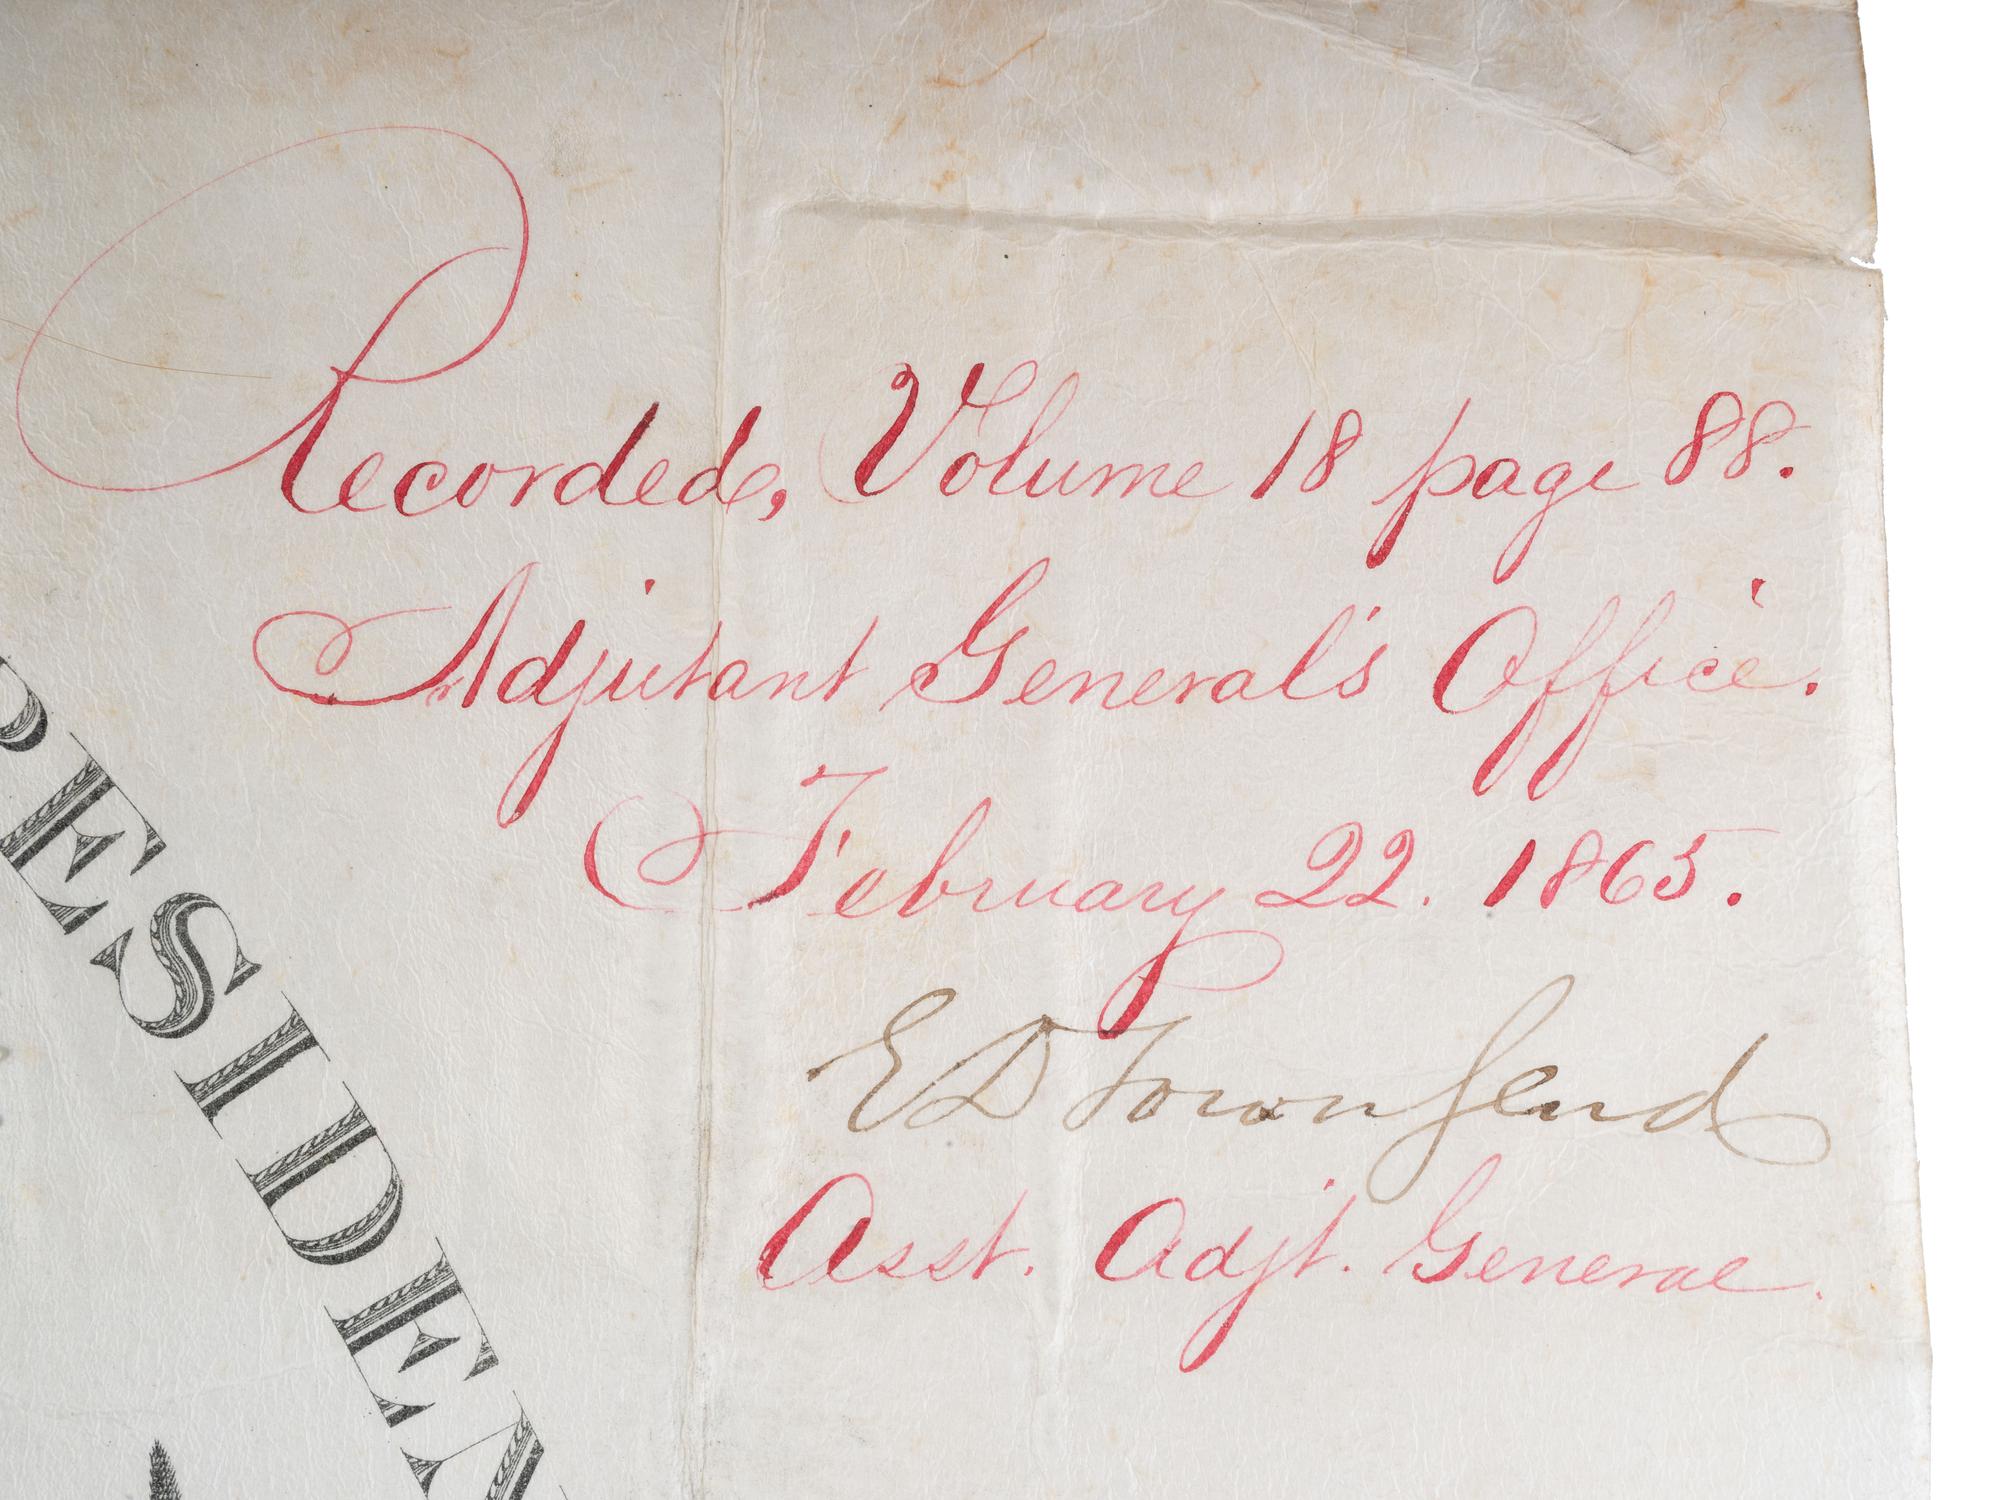 Recorded, Volume 18 page 88.
Adjutant General's Office.
February 22. 1865.
E D Townsend
Asst. Adjt. General.
RESIDEN